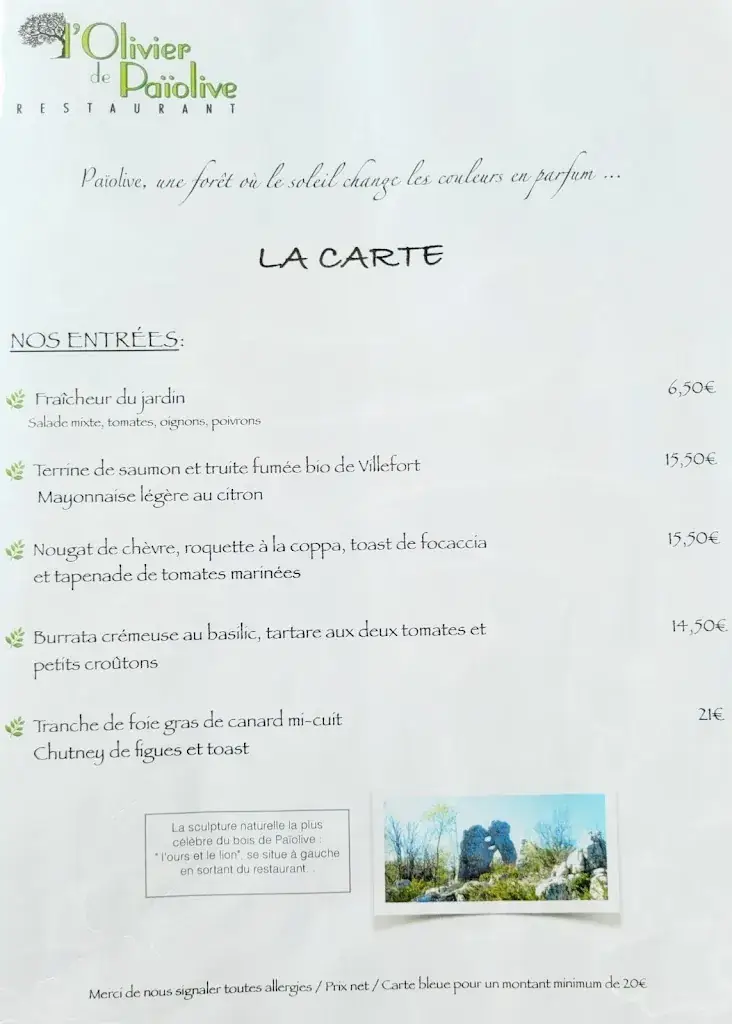 l'Olivier
de Païolive
RESTAURANT
Païolive, une forêt où le soleil change les couleurs en parfum ...
LA CARTE
NOS ENTRÉES:
Fraîcheur du jardin 6,50€
Salade mixte, tomates, oignons, poivrons
Terrine de saumon et truite fumée bio de Villefort 15,50€
Mayonnaise légère au citron
Nougat de chèvre, roquette à la coppa, toast de focaccia 15,50€
et tapenade de tomates marinées
Burrata crémeuse au basilic, tartare aux deux tomates et 14,50€
petits croûtons
Tranche de foie gras de canard mi-cuit 21€
Chutney de figues et toast
La sculpture naturelle la plus
célèbre du bois de Païolive :
" l'ours et le lion", se situe à gauche
en sortant du restaurant. .
Merci de nous signaler toutes allergies / Prix net / Carte bleue pour un montant minimum de 20€